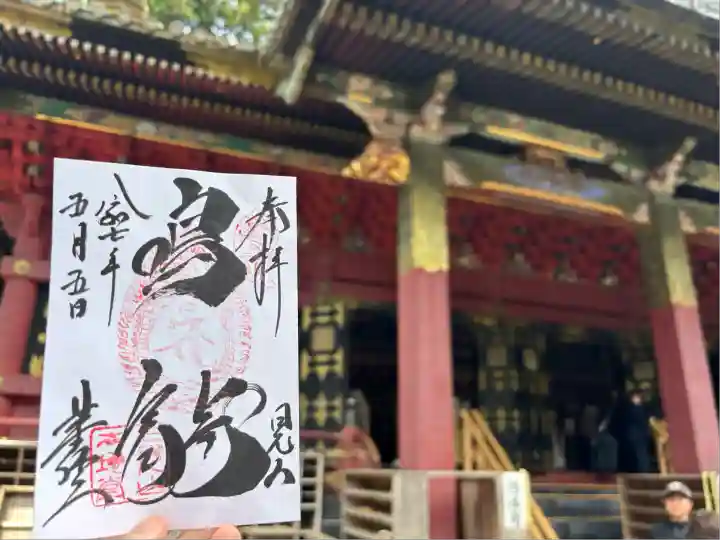 奉拝
日光山
鳴龍
令和七年
五月五日